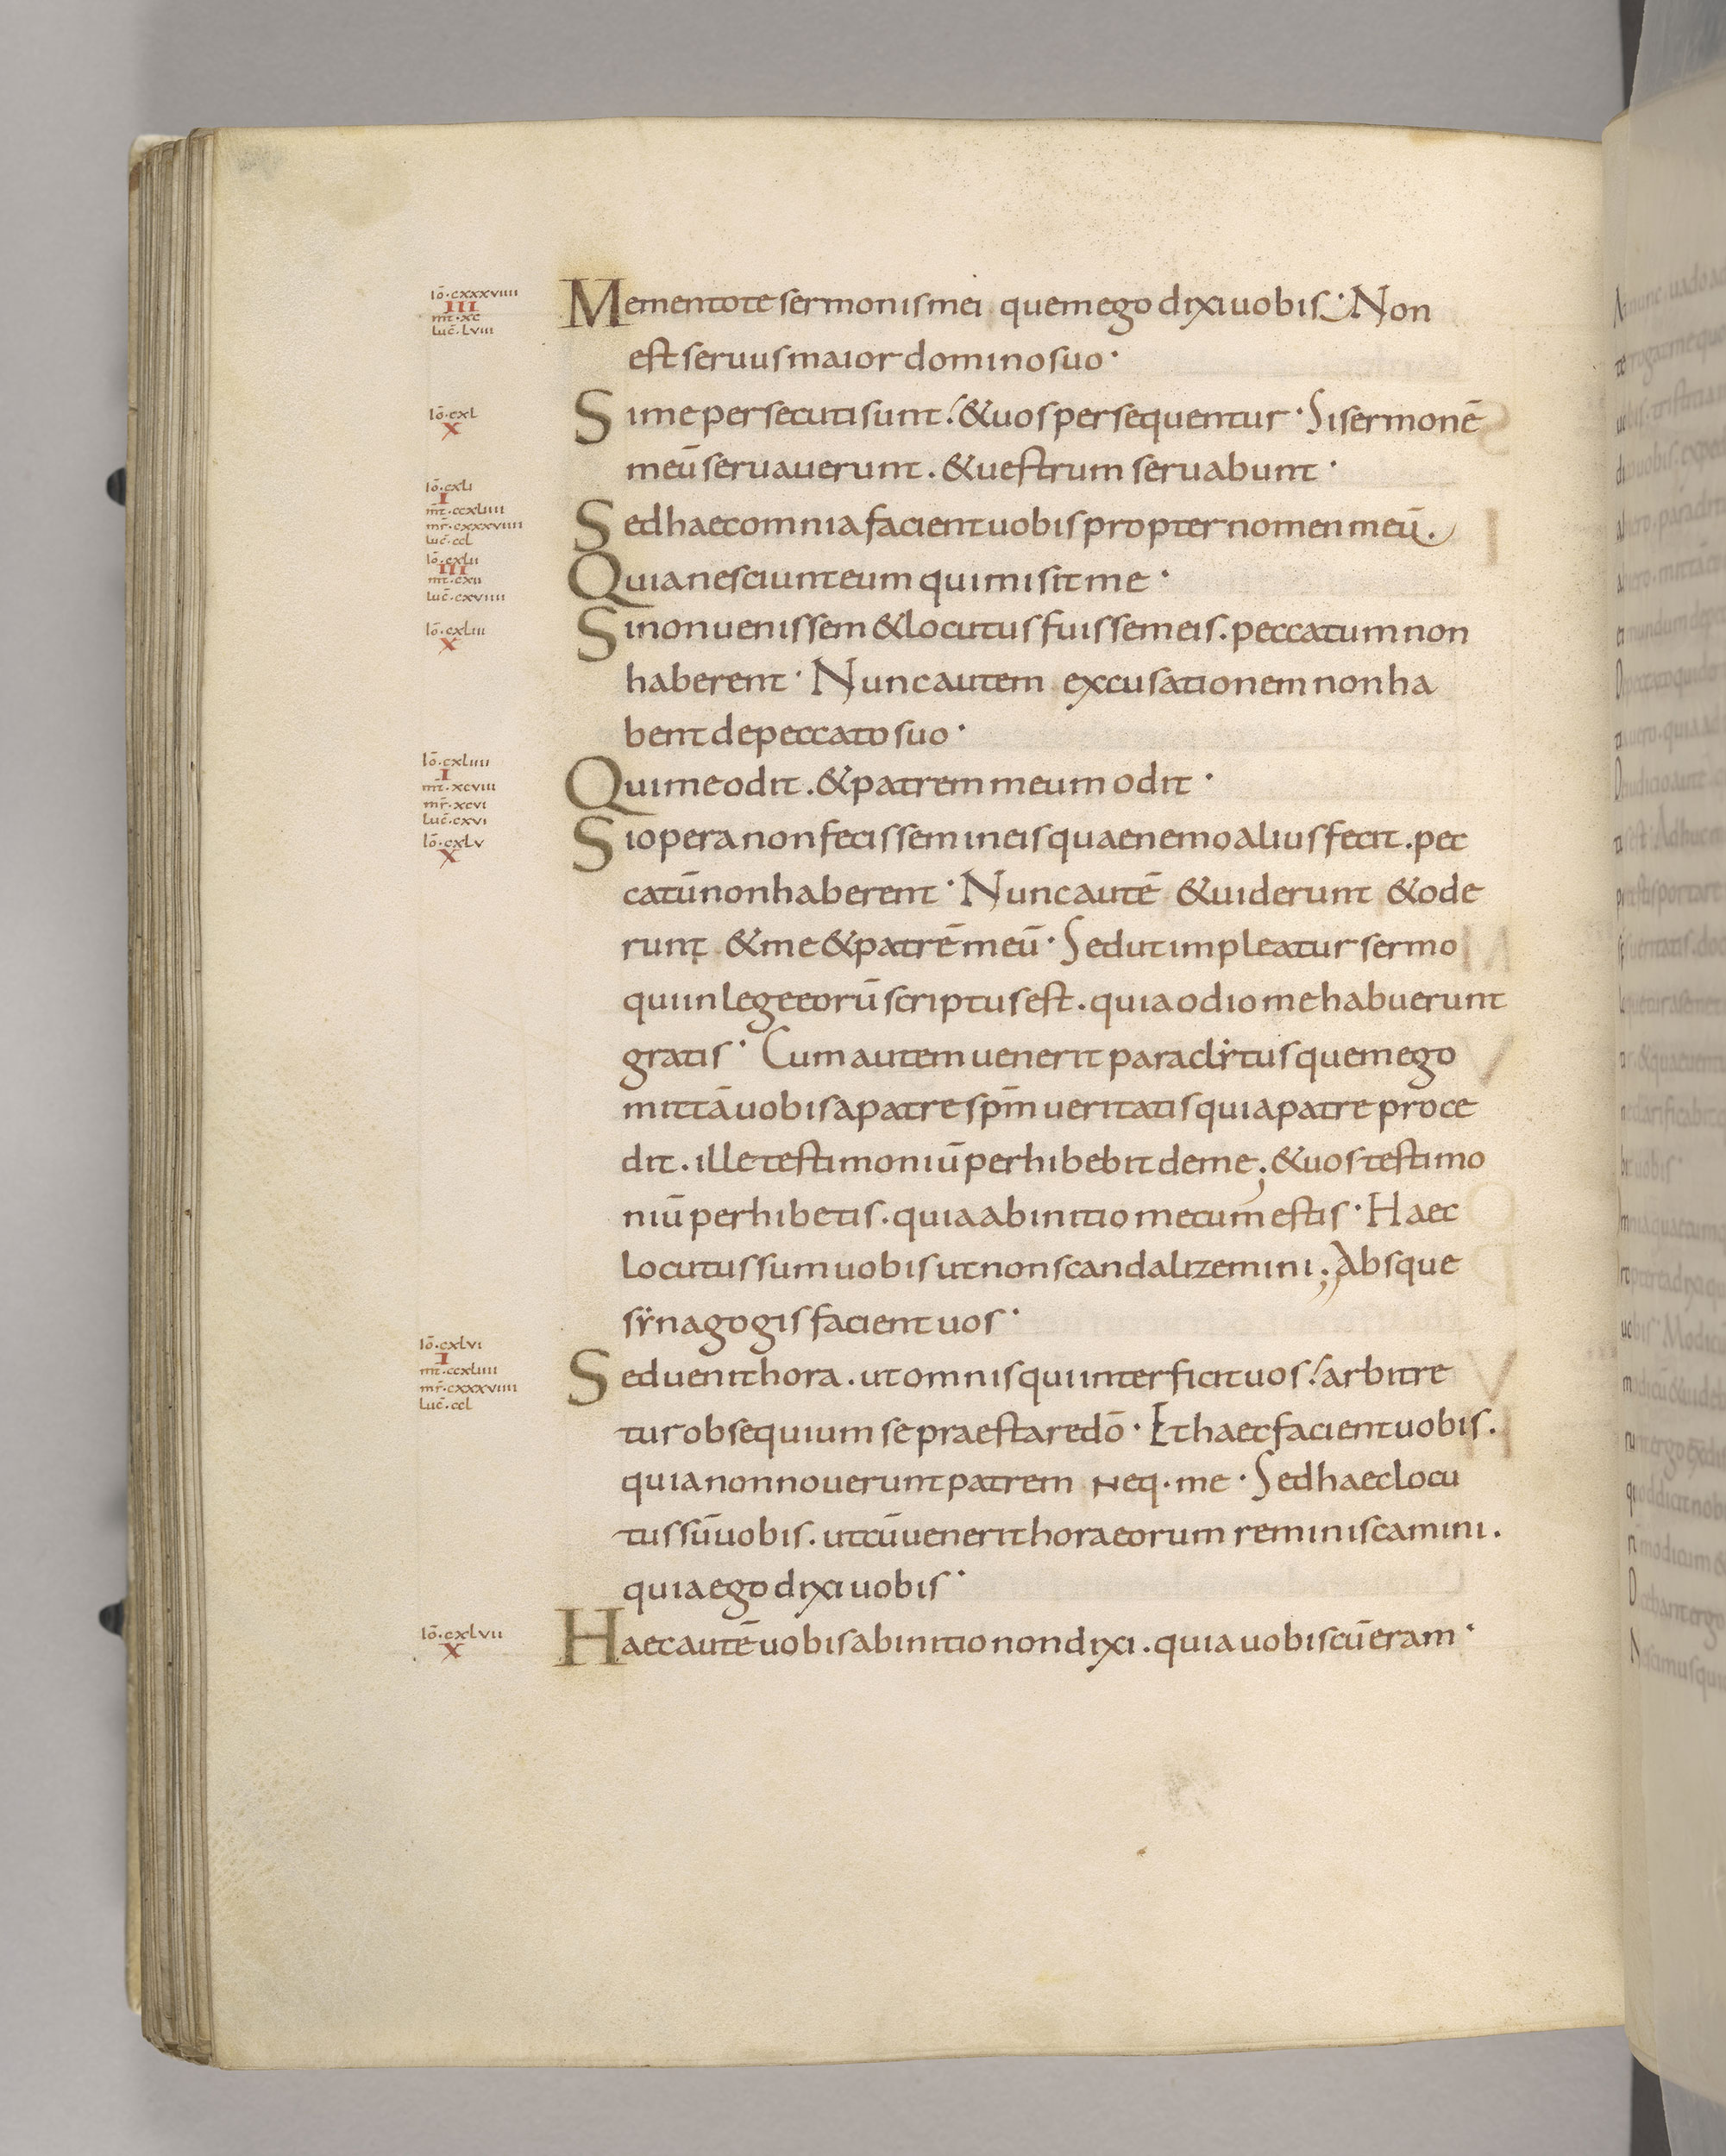 Iō·cxxxviiii
III
mt̄·xc
Luc̄·Lviii
Mementote sermonis mei quem ego dixi uobis; Non
est seruus maior domino suo·
Iō·cxl
X
Si me persecuti sunt. & uos persequentur· Si sermonē
meū seruauerunt. & uestrum seruabunt·
Iō·cxli
I
mt̄·ccxliiii
mr̄·cxxxviiii
Luc̄·ccl
Sed haec omnia facient uobis propter nomen meū.
Iō·cxlii
III
mt̄·cxii
Luc̄·cxviiii
Quia nesciunt eum qui misit me·
Iō·cxliii
X
Si non uenissem & locutus fuissem eis. peccatum non
haberent· Nunc autem excusationem non ha
bent de peccato suo·
Iō·cxliiii
I
mt̄·xcviii
mr̄·xcvi
Luc̄·cxvi
Qui me odit. & patrem meum odit·
Iō·cxlv
X
Si opera non fecissem in eis quae nemo alius fecit. pec
catū non haberent· Nunc autē & uiderunt & ode
runt & me & patrē meū· Sed ut impleatur sermo
qui in lege eorū scriptus est. quia odio me habuerunt
gratis· Cum autem uenerit paraclẏtus quem ego
mittā uobis a patre sp̄m ueritatis qui a patre proce
dit. ille testimoniū perhibebit de me; & uos testimo
niū perhibetis. quia ab initio mecum estis· Haec
locutus sum uobis ut non scandalizemini; Absque
sẏnagogis facient uos·
Iō·cxlvi
I
mt̄·ccxliiii
mr̄·cxxxviiii
Luc̄·ccl
Sed uenit hora. ut omnis qui interficit uos. arbitre
tur obsequium se praestare dō· Et haec facient uobis.
quia non nouerunt patrem neq· me· Sed haec locu
tus sū uobis. ut cū uenerit hora eorum reminiscamini.
quia ego dixi uobis·
Iō·cxlvii
X
Haec autē uobis ab initio non dixi. quia uobiscū eram·